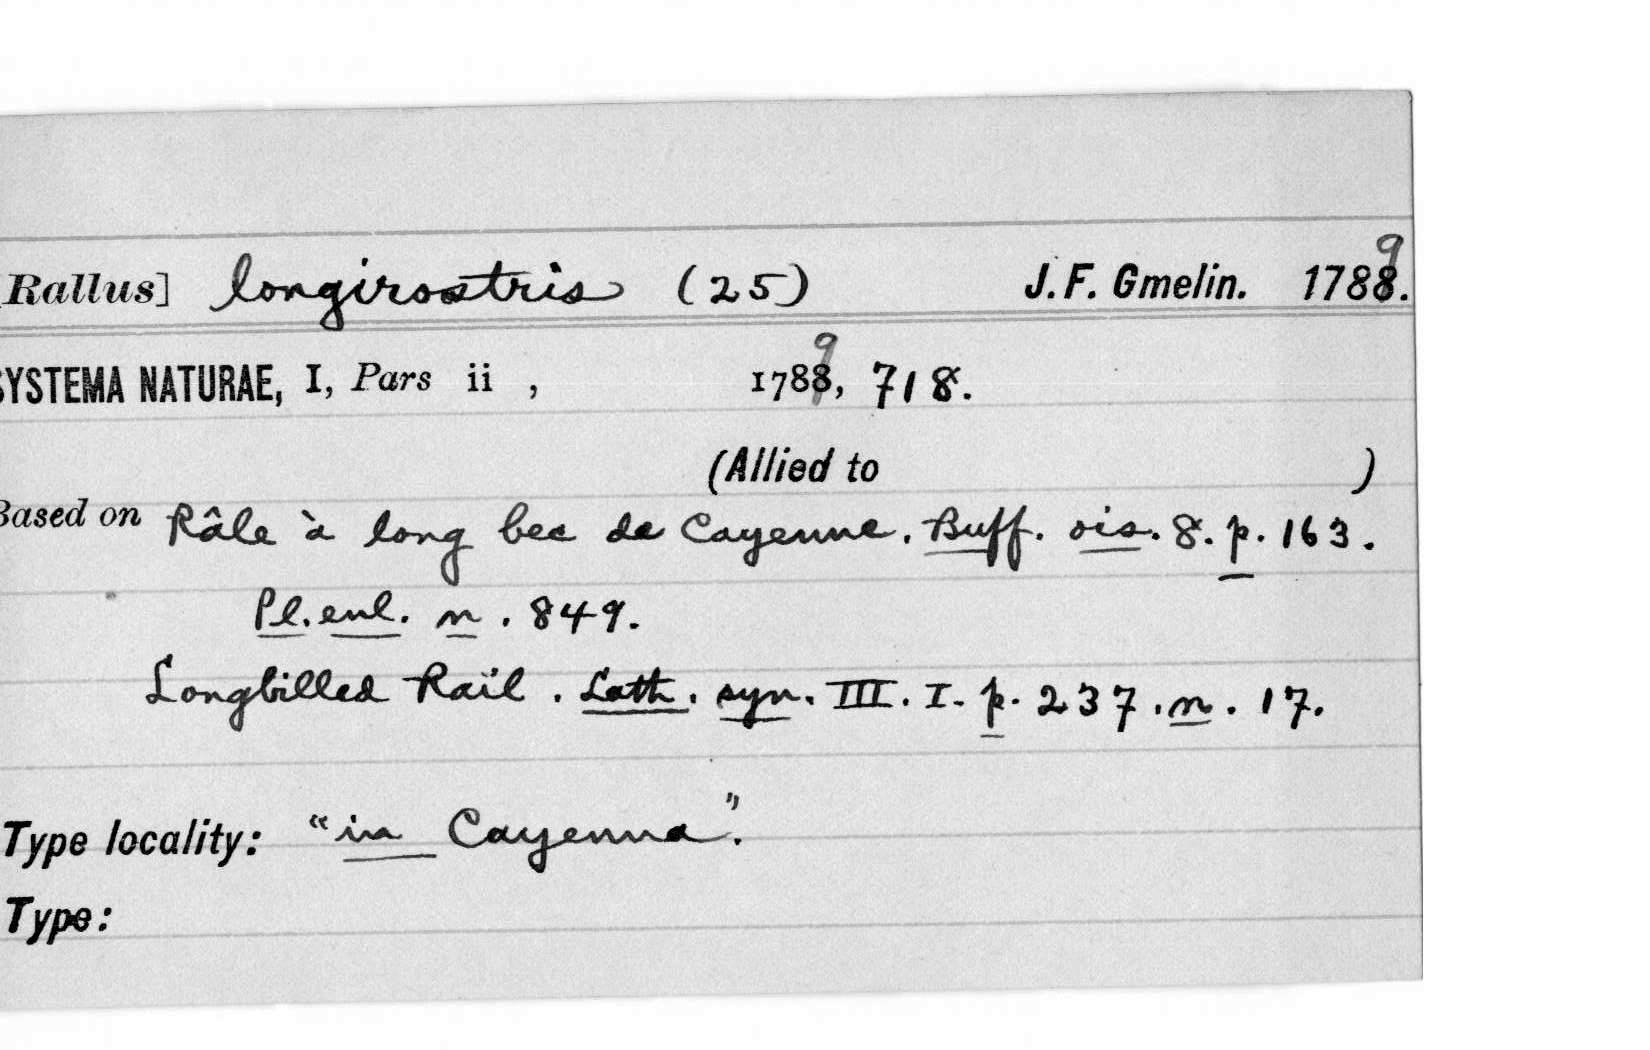 Rallus] longirostris (25) J. F. Gmelin. 1789.
SYSTEMA NATURAE, I, Pars ii , 1789, 718.
(Allied to )
Based on Râle à long bec de Cayenne. Buff. ois. 8. p. 163.
Pl. enl. n. 849.
Longbilled Rail. Lath. syn. III. I. p. 237. n. 17.
Type locality: "in Cayenna".
Type: